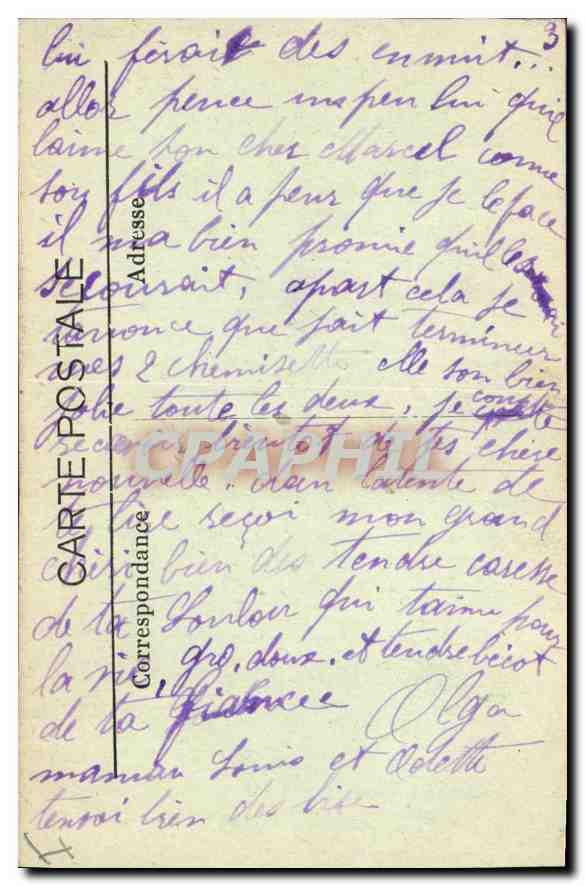 3
lui ferait des ennuit...
allor pence un peu lui qui
laime son cher Marcel comme
son fils il a peur que je le face
il ma bien promie quil
secourait, apart cela je
tannonce que jait terminer
mes 2 chemisette elle son bien
jolie toute les deux, je compte
recevoir bientot de tes chere
nouvelle. dan latente de
te lire reçoi mon grand
cheri bien des tendre caresse
de ta Loulou qui taime pour
la vie, gro, doux, et tendre bécot
de ta fiancee Olga
maman Louis et Odette
tenvoi bien des bise
CARTE POSTALE
Correspondance
Adresse
CPAPHIL